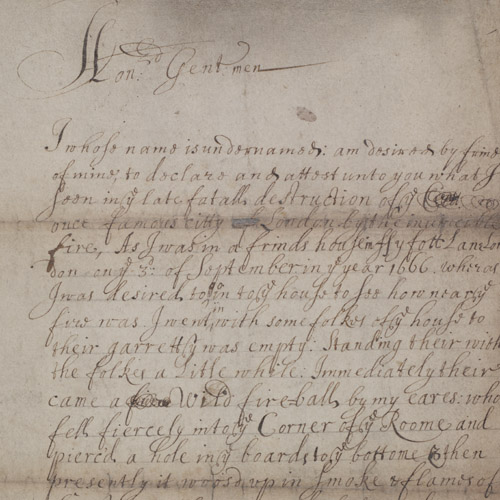 Hon:rd Gentmen
I whose name is undernamed: am desired by frinds
of mine, to declare and attest unto you what I
seen in ye late fatall destruction of ye
once famous citty London, by the
fire, As I was in a frinds house in ffyfott Lane Lon
don on ye 3d: of September in ye year 1666. wheras
I was desired to go in to ye house to see how near ye
fire was. I went in with some folkes of ye house to
their garrett yt was empty: Standing their with
the folkes a little while: Immediately their
came a Wild fire-ball by my eares: who
fell fiercely into ye Corner of ye Roome and
pierc'd a hole in ye boards to ye bottome & then
presently it up in Smoke & flames of